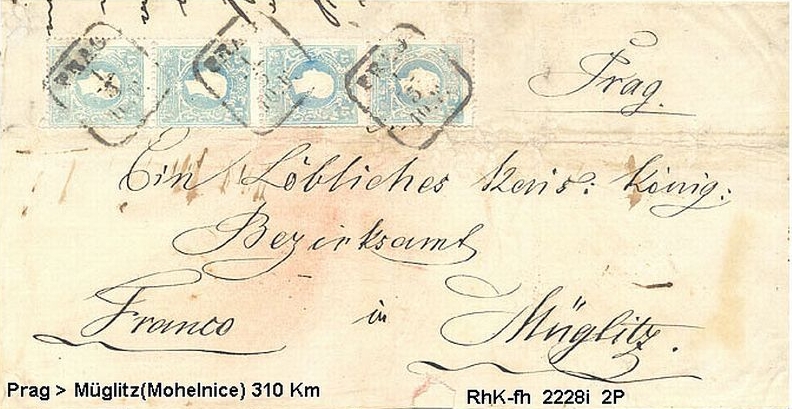 PRAG
PRAG
Prag.
Ein Löbliches Kais: König:
Bezirksamt
Franco in Müglitz.
Prag > Müglitz(Mohelnice) 310 Km
RhK-fh 2228i 2P